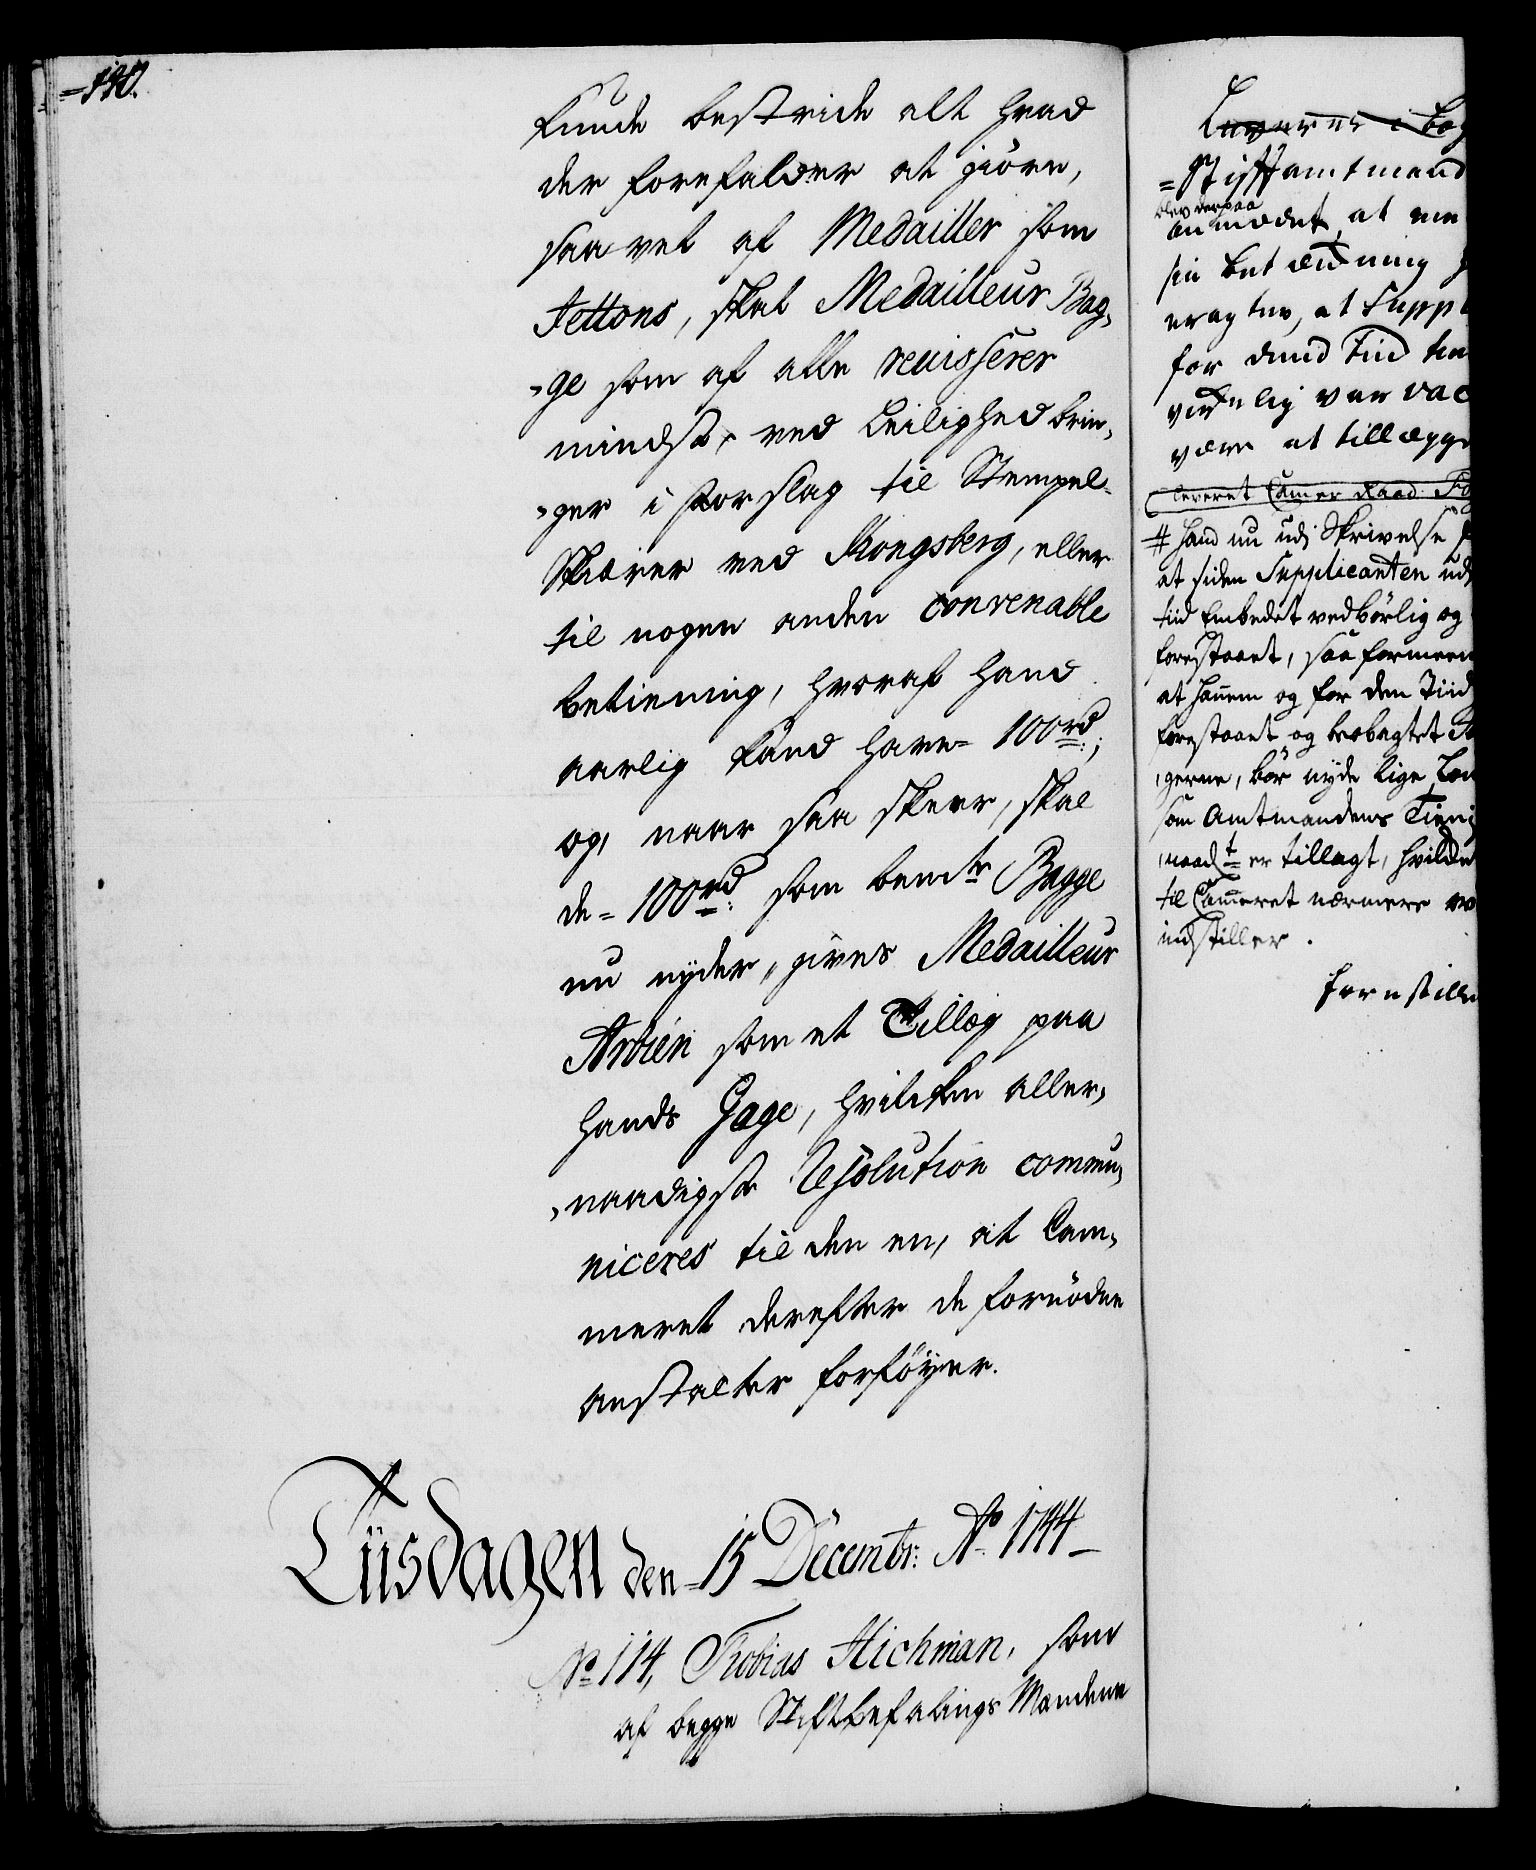 kunde bestride alt hvad
der forefalder at giöre,
saavel af Medailler som
Jettons, skal Medailleur Bag-
-ge som af alle reuisserer
mindst, ved Leilighed brin-
-ger i forslag til Stempel-
Skiærer ved Kongsberg, eller
til nogen anden convenable
betiening, hvoraf hand
aarlig kand have 100 rd.;
og, naar saa skeer, skal
de 100 rd. som bemte Bagge
nu nyder, gives Medailleur
Arbien som et Tillæg paa
hands Gage, hvilken aller-
-naadigste Resolution commu-
niceres til den en, at Cam-
meret derefter de fornödne
anstalter forföyer.
Tiisdagen den 15 Decembr: Ao 1744
No 114, Tobias Hichman, som
af begge Stiftbefalings Mændene
=Stiftamtmand
blev derpaa
anmodet, at
sin betænkning
eragter, at Suppl
for dend Tiid
virkelig var vac
være at tillægge
leveret Cammer Raad
# hand nu udi Skrivelse
at siden Supplicanten ud
tiid Embedet vedbörlig og
forestaaet, saa formeen
at hannem og for den Tiid
forestaaet og beobagtet
-gerne, bör nyde lige
som Amtmandens
er tillagt, hvilcket
til Cammeret nærmere
indstiller.
forestille